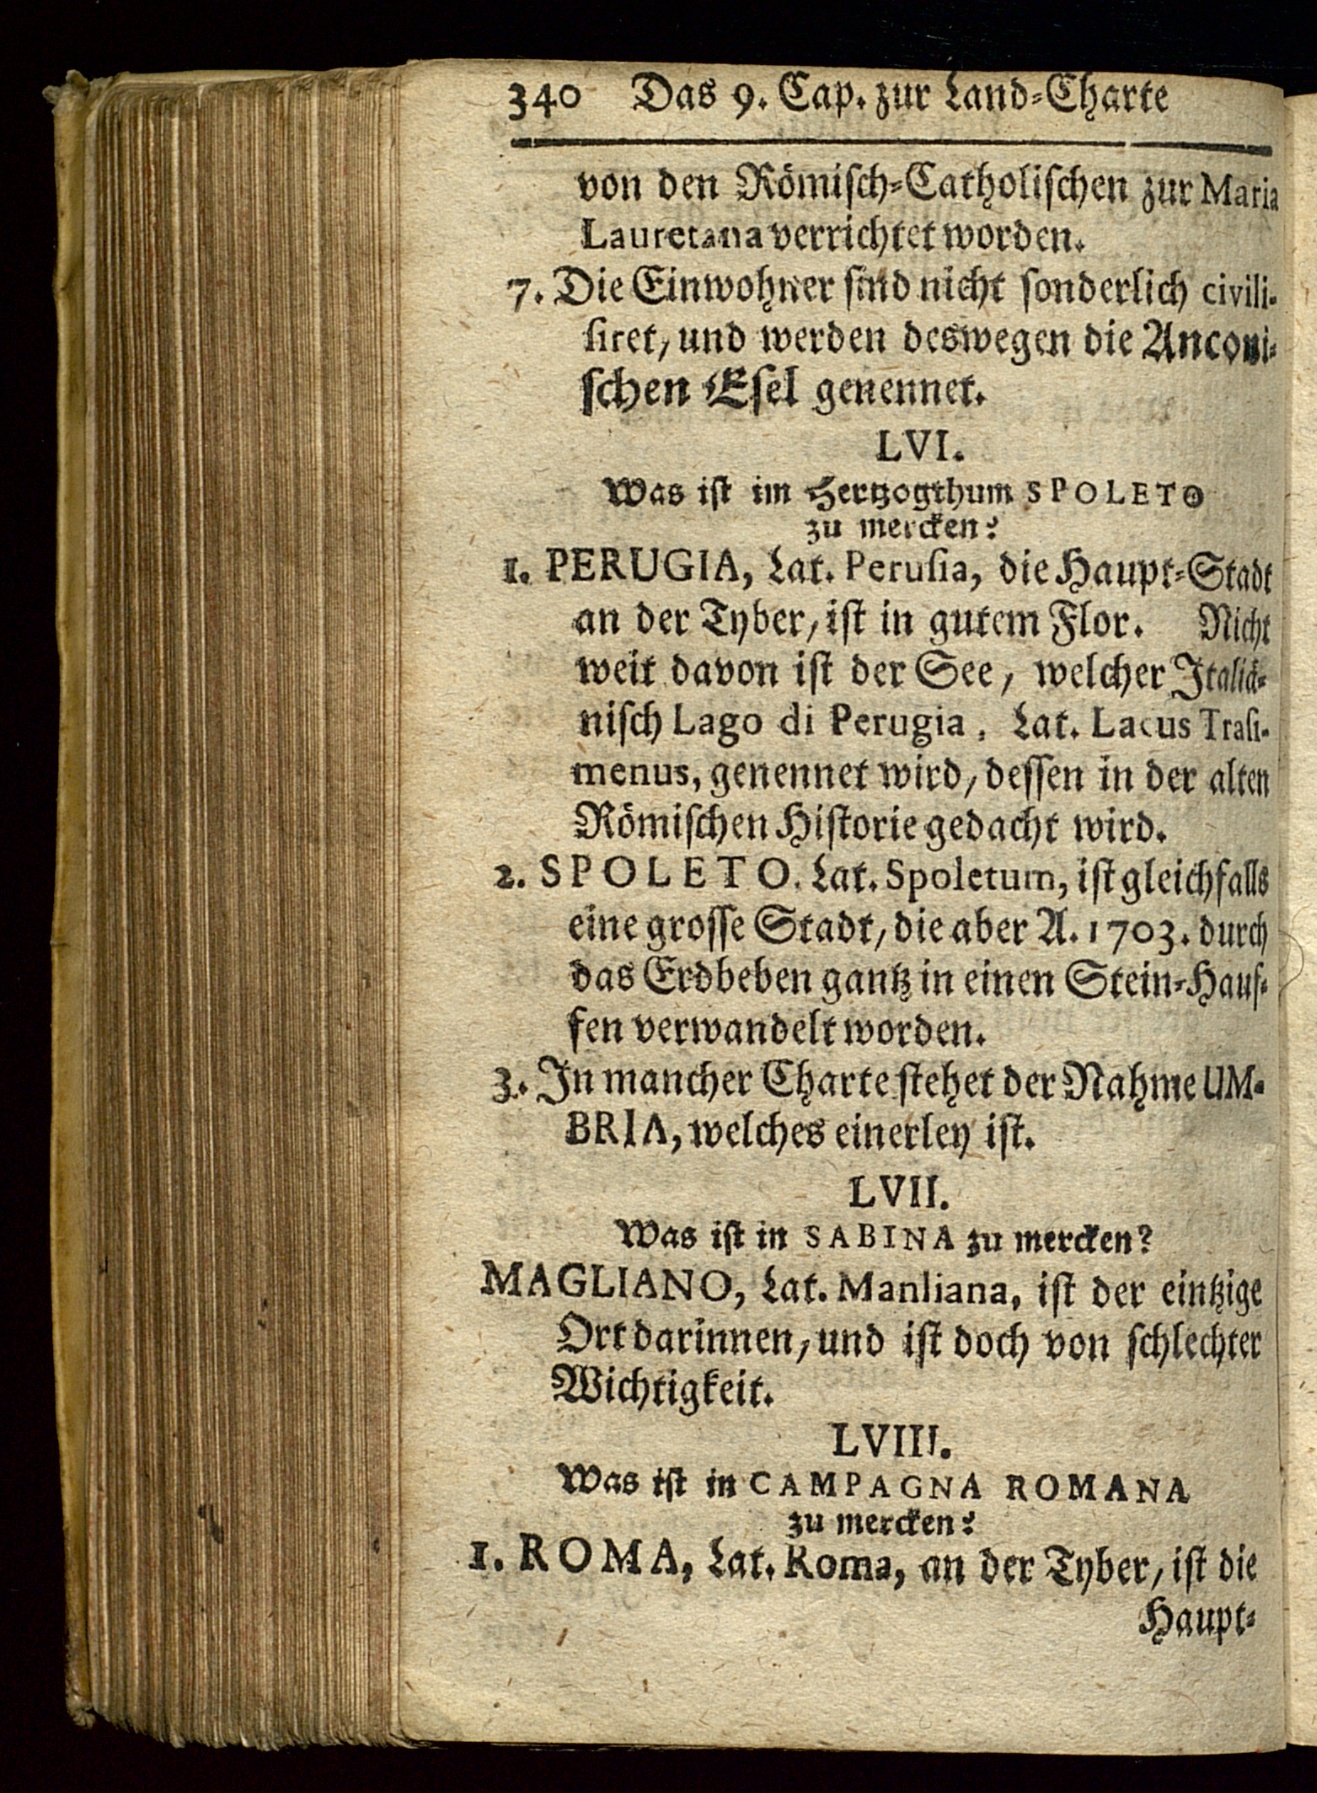 340 Das 9. Cap. zur Land-Charte
von den Römisch-Catholischen zur Maria
Lauretana verrichtet worden.
7. Die Einwohner sind nicht sonderlich civili-
siret, und werden deswegen die Anconi-
schen Esel genennet.
LVI.
Was ist im Hertzogthum SPOLETO
zu mercken?
1. PERUGIA, Lat. Perusia, die Haupt-Stadt
an der Tyber, ist in gutem Flor. Nicht
weit davon ist der See, welcher Italiä-
nisch Lago di Perugia, Lat. Lacus Trasi-
menus, genennet wird, dessen in der alten
Römischen Historie gedacht wird.
2. SPOLETO. Lat. Spoletum, ist gleichfalls
eine grosse Stadt, die aber A. 1703. durch
das Erdbeben gantz in einen Stein-Hauf-
fen verwandelt worden.
3. In mancher Charte stehet der Nahme UM-
BRIA, welches einerley ist.
LVII.
Was ist in SABINA zu mercken?
MAGLIANO, Lat. Manliana, ist der eintzige
Ort darinnen, und ist doch von schlechter
Wichtigkeit.
LVIII.
Was ist in CAMPAGNA ROMANA
zu mercken?
1. ROMA, Lat. Roma, an der Tyber, ist die
Haupt-